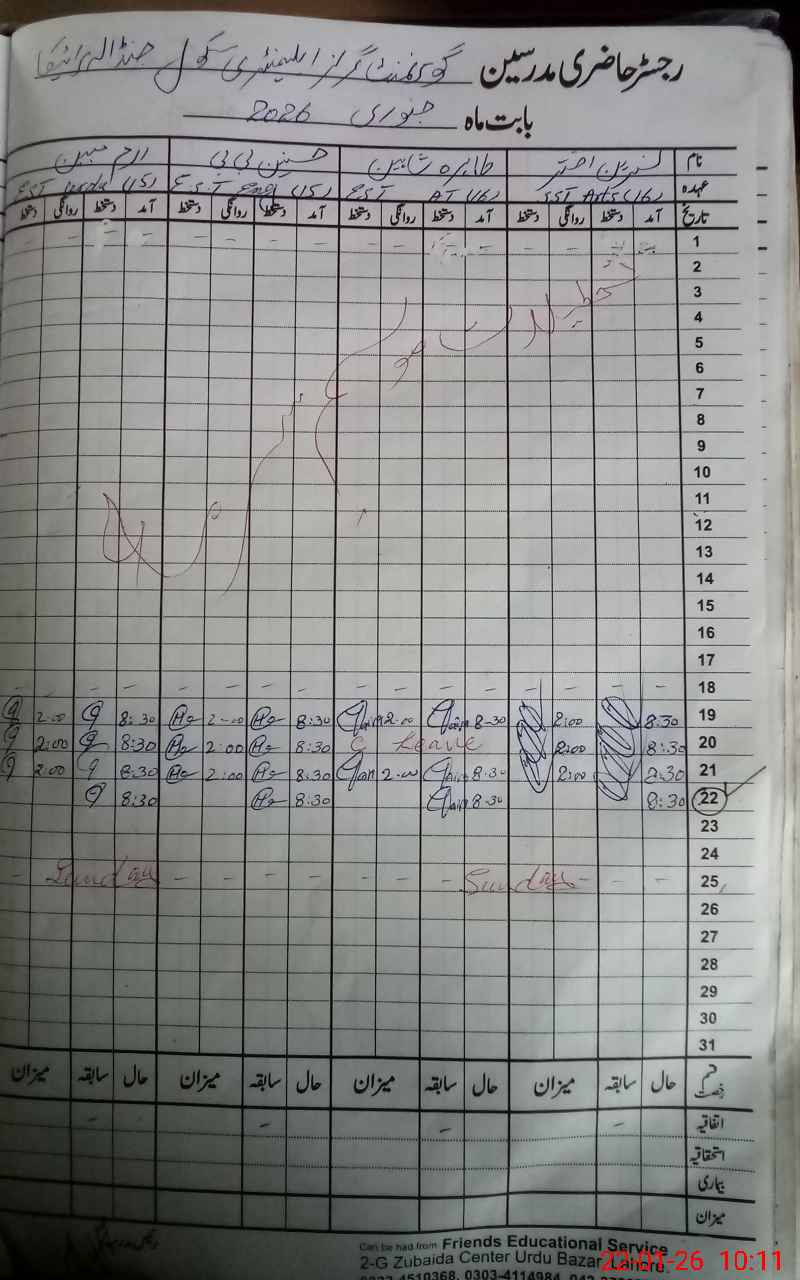 رجسٹر حاضری مدرسین گورنمنٹ گرلز ایلیمنٹری سکول
بابت ماہ جنوری 2026
نام نسرین اختر طاہرہ شاہین حسنین بی بی ارم مبین
عہدہ SST Arts (16) EST AT (16) E.S.T Eng (15) EST Urdu (15)
تاریخ آمد دستخط روانگی دستخط آمد دستخط روانگی دستخط آمد دستخط روانگی دستخط آمد دستخط روانگی دستخط
1 – – – – – – – –
2
3
4
5
6
7
8
9
10
11
12
13
14
15
16
17
تعطیلات موسم سرما
18 – – – – – – – –
19 8:30 2:00 8-30 2-00 8:30 2-00 8:30 2:00
20 8:30 2:00 C Leave 8:30 2:00 8:30 2:00
21 8:30 2:00 8-30 2-00 8:30 2:00 8:30 2:00
22 8:30 8-30 8:30 8:30
23
24
25 – – Sunday – – – – – Sunday –
26
27
28
29
30
31
قسم رخصت حال سابقہ میزان حال سابقہ میزان حال سابقہ میزان حال سابقہ میزان
اتفاقیہ – – – –
استحقاقیہ
بیماری
میزان
Can be had from Friends Educational Service
2-G Zubaida Center Urdu Bazar Lahore
0303-4114984
22-01-26 10:11